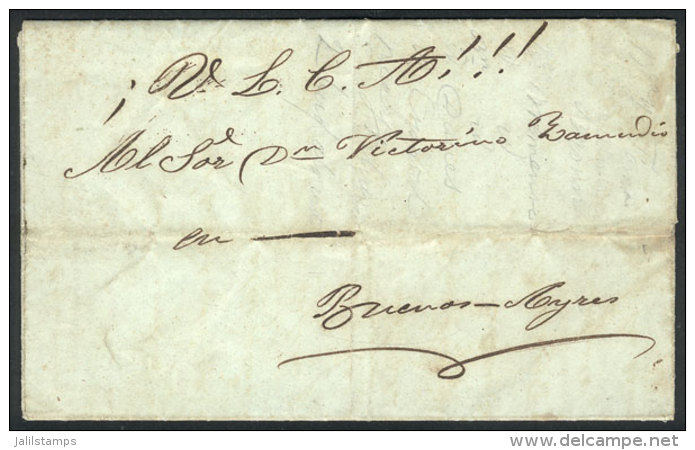 ¡ Va L. C. A!!!!
Al Sor. Dn Victorino Zamudio
en
Buenos-Ayres
jalilstamps
delcampe.net